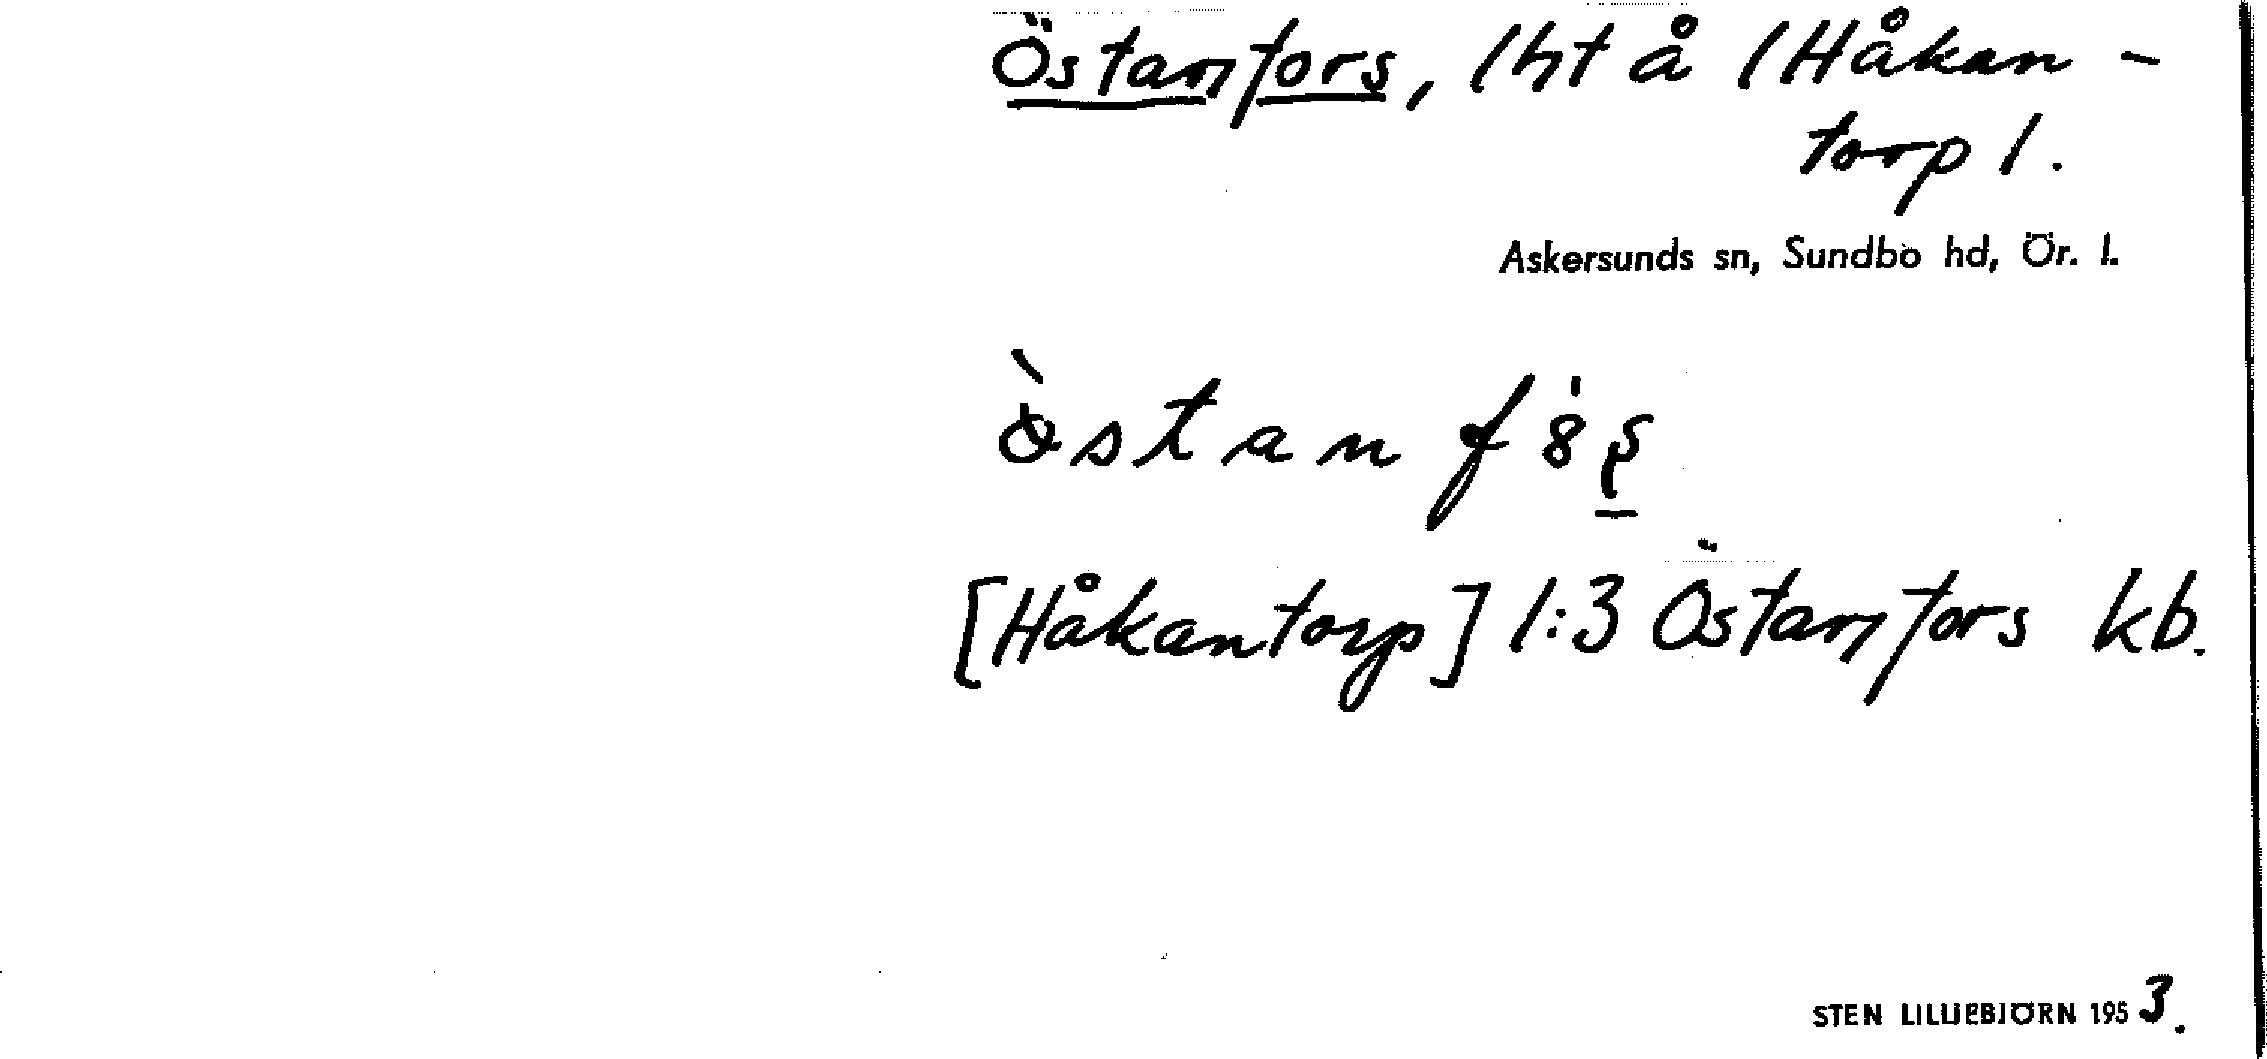 Östanfors, lht å /Håkan-
torp/.
Askersunds sn, Sundbo hd, Ör. l.
[Håkantorp] 1:3 Östanfors kb.
STEN LILLIEBJÖRN 1953.